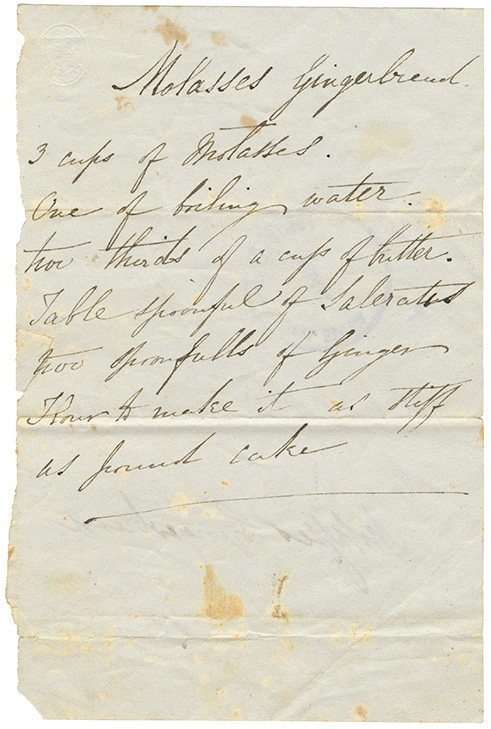 Molasses Gingerbread.
3 cups of Molasses.
One of boiling water.
two thirds of a cup of butter.
Table spoonful of Saleratus
two spoonfulls of Ginger
Flour to make it as stiff
as pound cake